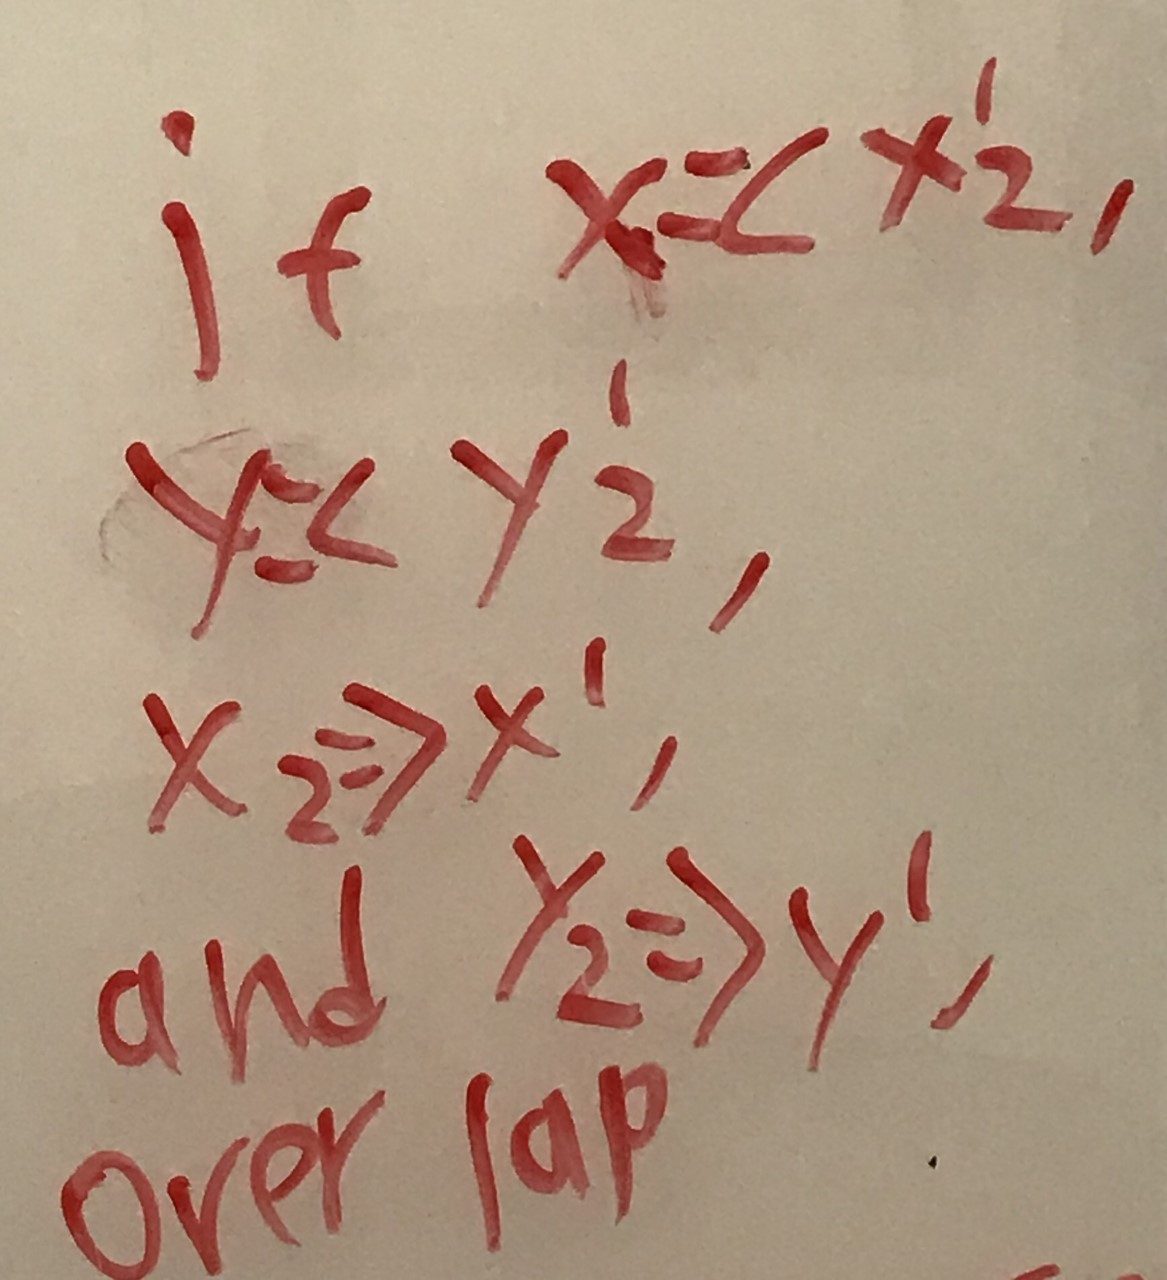 if x=< x'2,
Y=< Y'2,
X2=>x',
and Y2=>y',
over lap